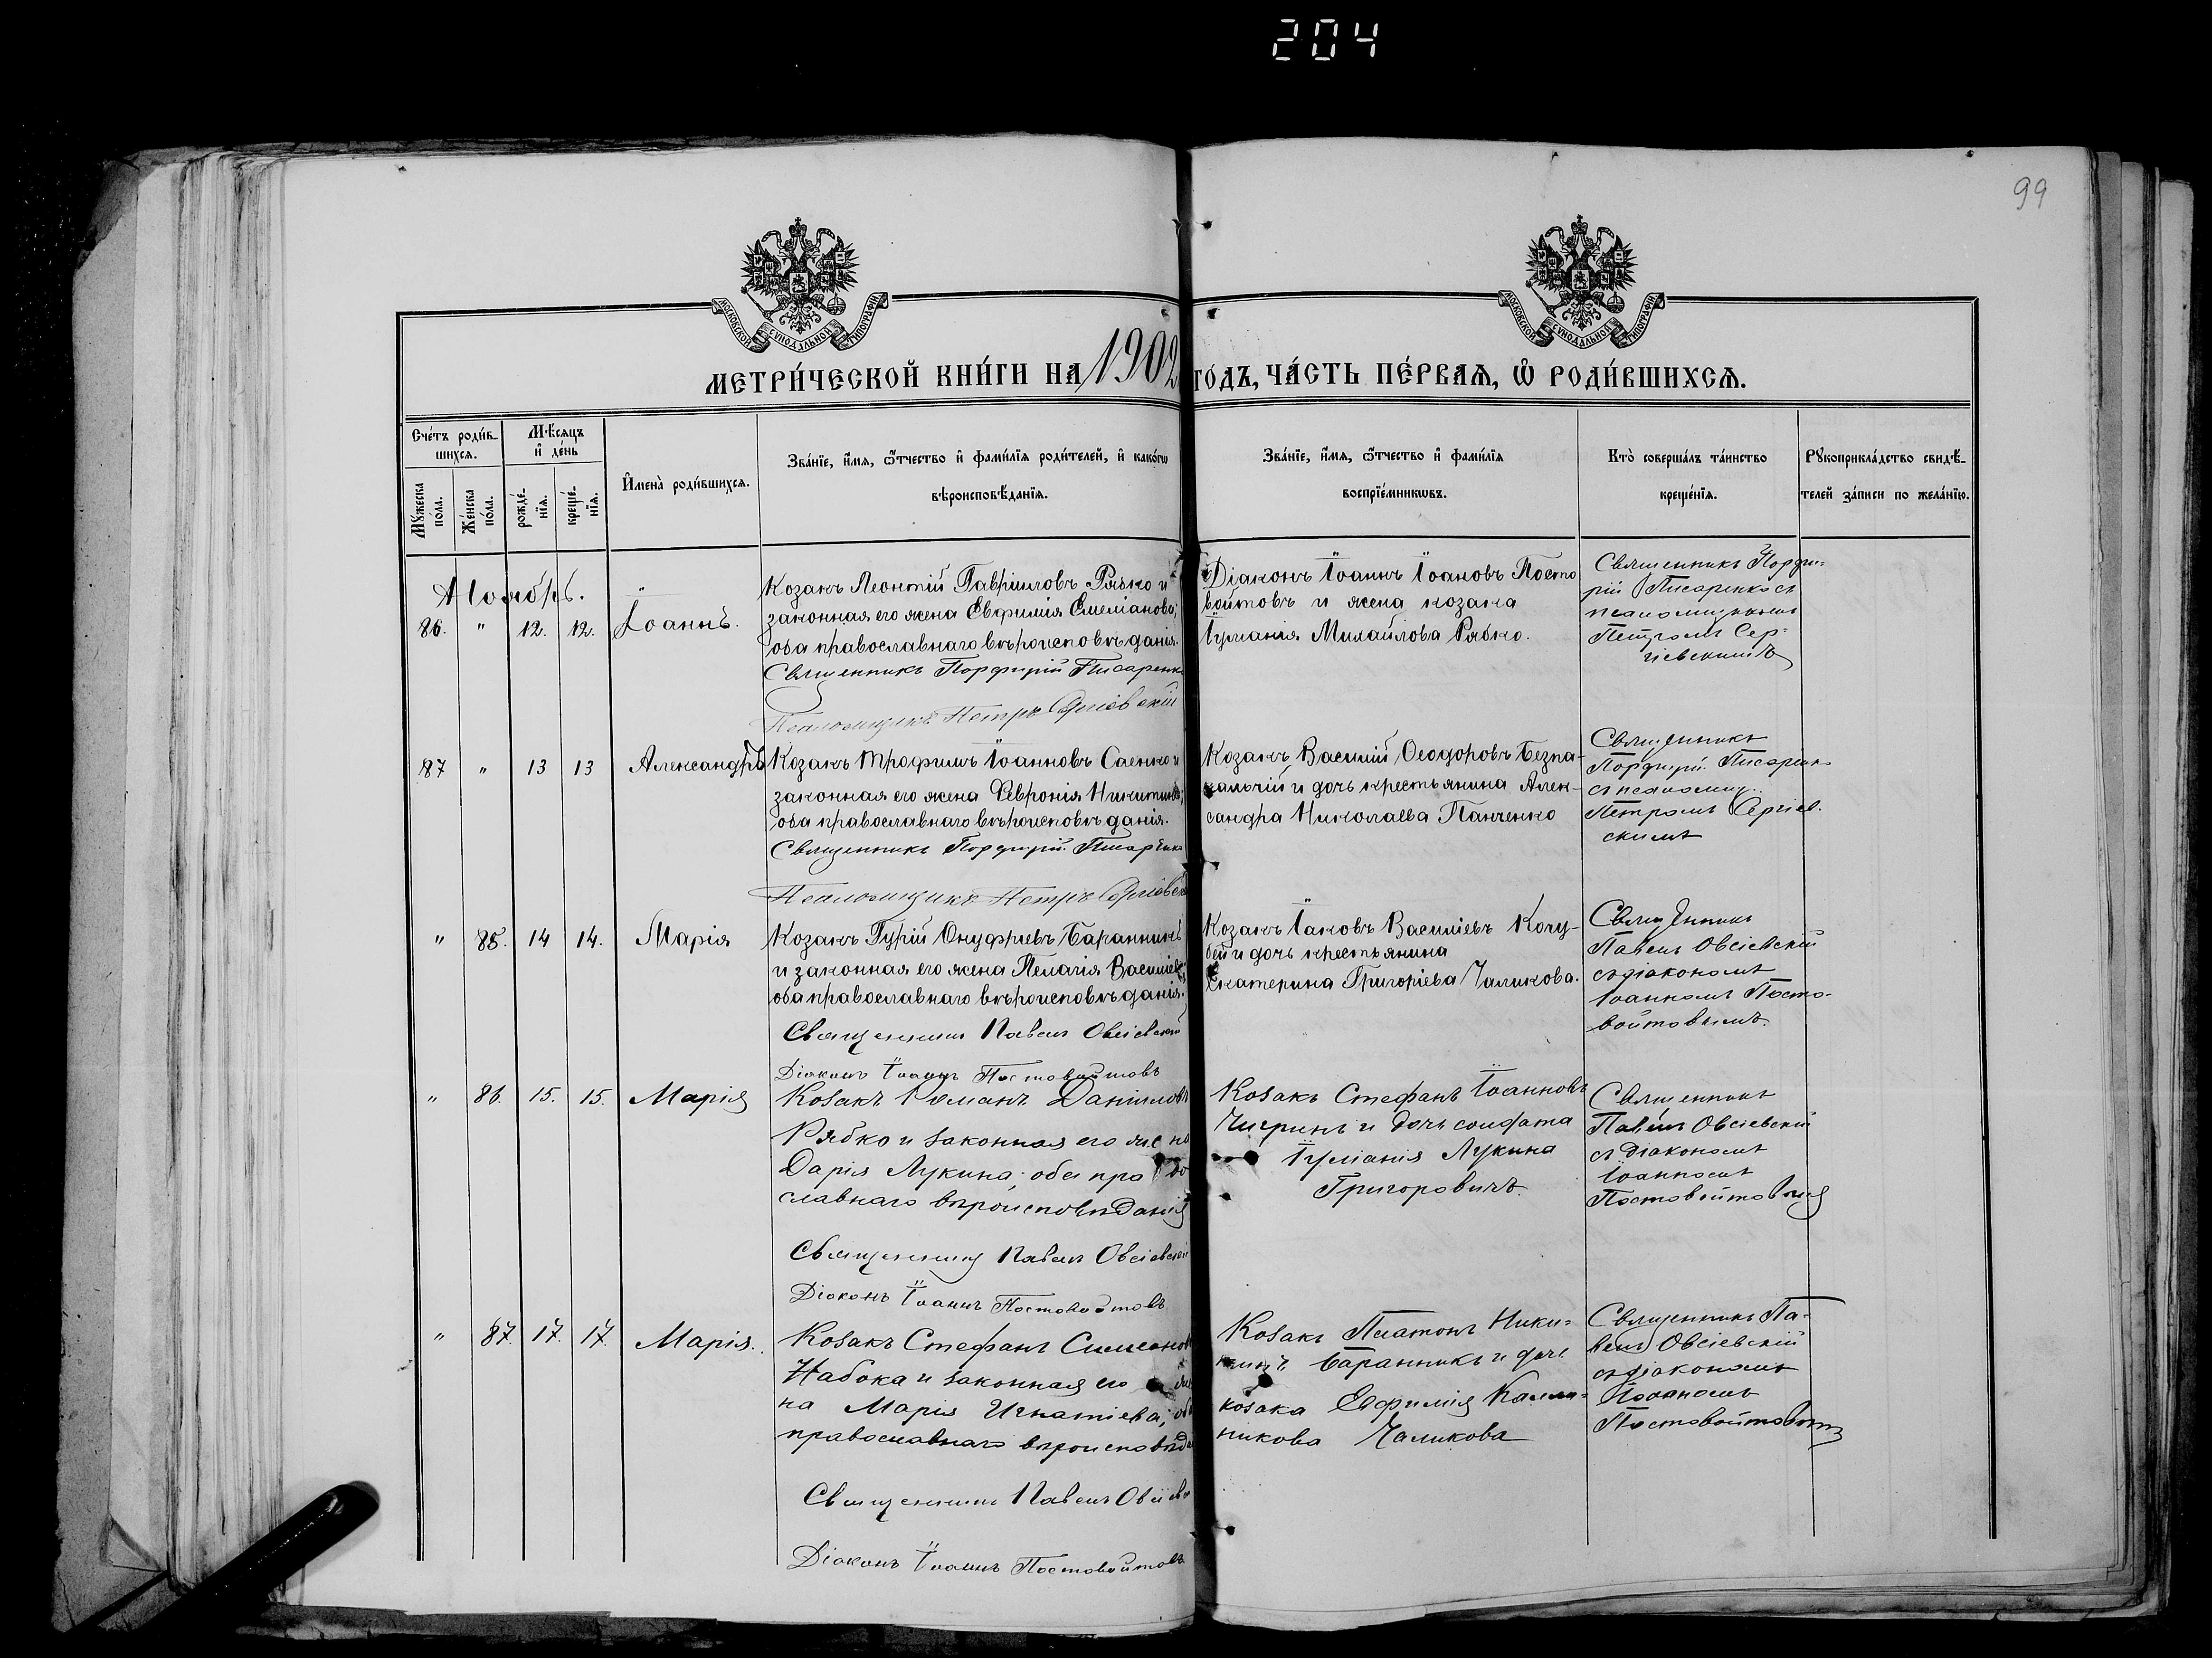 204
99
МОСКОВСКОЙ СѴНОДАЛЬНОЙ ТИПОГРАФІИ
МОСКОВСКОЙ СѴНОДАЛЬНОЙ ТИПОГРАФІИ
МЕТРИ́ЧЕСКОЙ КНИ́ГИ НА 1902 ГОДЪ, ЧА́СТЬ ПЕ́РВАѦ, Ѡ҆ РОДИ́ВШИХСѦ.
Сче́тъ роди́вшихсѧ.
Мꙋ́жеска по́ла.
Же́нска по́ла.
Мѣ́сѧцъ и҆ де́нь
рожде́нїѧ.
креще́нїѧ.
И҆мена̀ роди́вшихсѧ.
Зва́нїе, и҆́мѧ, ѻ҆́тчество и҆ фами́лїѧ роди́телей, и҆ како́гѡ
вѣроисповѣ́данїѧ.
Зва́нїе, и҆́мѧ, ѻ҆́тчество и҆ фами́лїѧ
воспрїе́мникѡвъ.
Кто̀ соверша́лъ та́инство
креще́нїѧ.
Рꙋкоприкла́дство свидѣ́-
телей за́писи по жела́нїю.
Ноябрь.
86. " 12. 12. Іоаннъ.
Козакъ Леонтій Гавріиловъ Рябко и
законная его жена Евфимія Емеліанова;
оба православнаго вѣроисповѣданія.
Священникъ Порфирій Писаренко
Псаломщикъ Петръ Сергіевскій
Діаконъ Іоаннъ Іоановъ Посто
войтовъ и жена козака
Іуліанія Михайлова Рябко.
Священникъ Порфи-
рій Писаренко съ
псаломщикомъ
Петромъ Сер-
гіевскимъ
87 " 13 13 Александръ
Козакъ Трофимъ Іоанновъ Саенко и
законная его жена Февронія Никитина;
оба православнаго вѣроисповѣданія.
Священникъ Порфирій Писаренко
Псаломщикъ Петръ Сергіевск
Козакъ Василій Ѳеодоровъ Безпа-
кальчій и дочь крестьянина Алек-
сандра Николаева Панченко
Священникъ
Порфирій Писаренко
съ псаломщ.
Петромъ Сергіев-
скимъ
" 85. 14 14. Марія
Козакъ Гурій Онуфріевъ Баранникъ
и законная его жена Пелагія Василіева;
оба православнаго вѣроисповѣданія.
Священникъ Павелъ Овсіевскій
Діаконъ Іоаннъ Постовойтовъ
Козакъ Іаковъ Василіевъ Кочу-
бей и дочь крестьянина
Екатерина Григоріева Чаликова.
Священникъ
Павелъ Овсіевскій
съ діакономъ
Іоанномъ Посто-
войтовымъ.
" 86. 15. 15. Марія
Козакъ Романъ Даніиловъ
Рябко и законная его жена
Дарія Лукина; оба право
славнаго вѣроисповѣданія
Священникъ Павелъ Овсіевскій
Діаконъ Іоаннъ Постовойтовъ
Козакъ Стефанъ Іоанновъ
Чигринъ и дочь солдата
Іуліанія Лукина
Григоровичъ.
Священникъ
Павелъ Овсіевскій
съ діакономъ
Іоанномъ
Постовойтовымъ
" 87. 17. 17. Марія.
Козакъ Стефанъ Симеонов
Набока и законная его же
на Марія Игнатіева; оба
православнаго вѣроисповѣда
Священникъ Павелъ Овсіевск
Діаконъ Іоаннъ Постовойтовъ
Козакъ Платонъ Ники-
тинъ Баранникъ и дочь
козака Евфимія Калли-
никова Чаликова
Священникъ Па-
велъ Овсіевскій
съ діакономъ
Іоанномъ
Постовойтовымъ